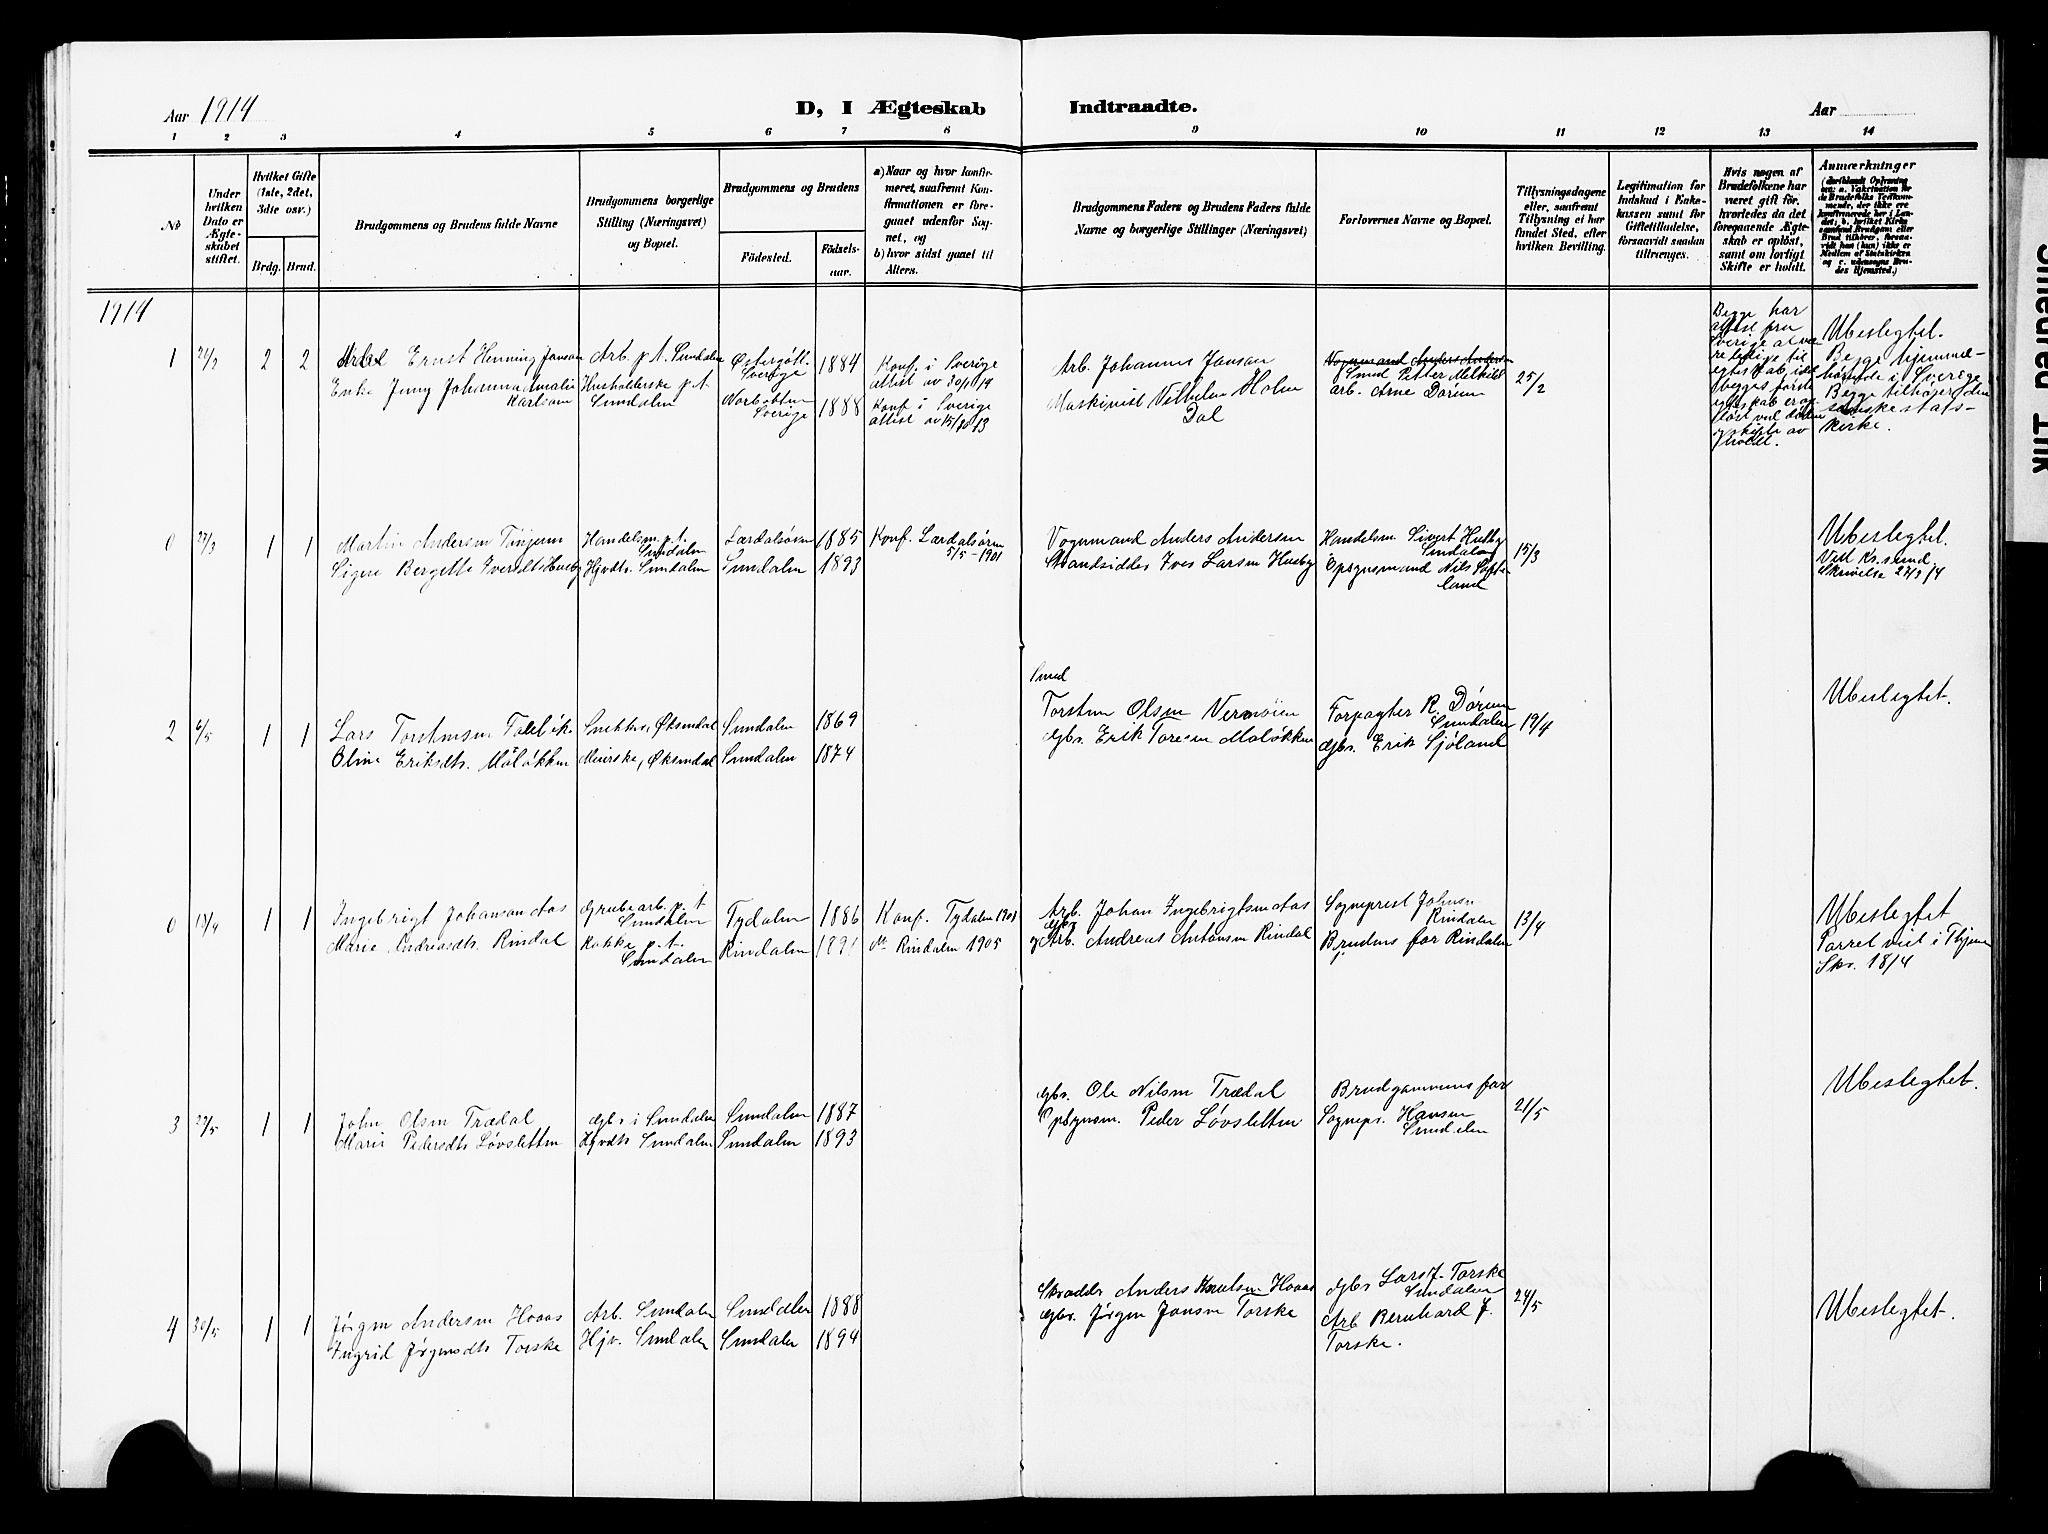 Aar 1914
D, I Ægteskab
Indtraadte.
Aar
1 2 3 4 5 6 7 8 9 10 11 12 13 14
No
Under hvilken Dato er Ægteskabet stiftet.
Hvilket Gifte (1ste, 2det, 3die osv.)
Brdg. Brud.
Brudgommens og Brudens fulde Navne
Brudgommens borgerlige Stilling (Næringsvei) og Bopæl.
Brudgommens og Brudens
Fødested.
Fødselsaar.
a) Naar og hvor konfirmeret, saafremt Konfirmationen er foregaaet udenfor Sognet, og
b) hvor sidst gaaet til Alters.
Brudgommens Faders og Brudens Faders fulde Navne og borgerlige Stillinger (Næringsvei)
Forlovernes Navne og Bopæl.
Tillysningsdagene eller, saafremt Tillysning ei har fundet Sted, efter hvilken Bevilling.
Legitimation for Indskud i Enkekassen samt for Giftetilladelse, forsaavidt saadan tiltrænges.
Hvis nogen af Brudefolkene har været gift før, hvorledes da det foregaaende Ægteskab er opløst, samt om lovligt Skifte er holdt.
Anmærkninger
1914
1 2 2
Ernst Henning Janson
Enke Jenny Johanna Amalia
Karlson
Arb. p.t. Sundalen
Husholderske p.t.
Sundalen
Østergötl.
Sverige
Norbotten
Sverige
1884
1888
Konf. i Sverige
attest av 30/1 14
Konf. i Sverige
attist av 15/10 13
Arb. Johannes Janson
Maskinist Vilhelm Holm
Dal
Vognmand Anders Andersen
Smed Petter Melkild
arb. Arne Dørum
25/2
Begge har
attest fra
Sverige
Ubeslegtet.
Begge hjemme-
hørende i Sverige
Begge tilhører den
svenske stats-
kirke.
0 27/3 1 1
Martin Andersen Tønjum
Signe Bergette Iversdt. Husby
Handelsm. p.t.
Sundalen
Hjvdt. Sundalen
Lærdalsøren
Sundalen
1885
1893
Konf. Lærdalsøren
5/5 - 1901
Vognmand Anders Andersen
Strandsidder Iver Larsen Husby
Handelsm. Sivert Husby
Sundalen
Opsynsmand Nils
land
15/3
Ubeslegtet.
Ved Kr.sund
Skrivelse 27/3 14
2 6/5 1 1
Lars Torstensen
Oline Eriksdt. Måløkken
Snekker, Øksendal
Meierske, Øksendal
Sundalen
Sundalen
1869
1874
Smed
Torsten Olsen Vermøien
gbr. Erik Toresen Måløkken
Forpagter R. Dørum
Sundalen
gbr. Erik Sjøland
19/4
Ubeslegtet.
0 18/4 1 1
Ingebrigt Johansen Aas
Marie Andreasdt. Rindal
Grubearb. p.t.
Sundalen
Kokke p.t.
Sundalen
Tydalen
Rindalen
1886
1891
Konf. Tydalen 1901
do Rindalen 1905
Arb. Johan Ingebrigtsen Aas
Arb. Andreas Antonsen Rindal
Sogneprest Johnsen
Rindalen
Brudens far Rindalen
13/4
Ubeslegtet
Parret viet i Thjem
Skr. 18/4
3 27/5 1 1
John Olsen Trædal
Marit Pedersdt. Løvsletten
gbr i Sundalen
Hjvdt. Sundalen
Sundalen
Sundalen
1887
1893
gbr. Ole Nilsen Trædal
Opsynsm. Peder Løvsletten
Brudgommens far
Sognepr. Hansen
Sundalen
21/5
Ubeslegtet.
4 30/5 1 1
Jørgen Andersen Hoaas
Ingrid Jørgensdt. Torske
Arb. Sundalen
Hjv. Sundalen
Sundalen
Sundalen
1888
1894
Skrædder Anders Knutsen Hoaas
gbr. Jørgen Jonsen Torske
gbr Lars J. Torske
Sundalen
Arb Bernhard J.
Torske.
24/5
Ubeslegtet.